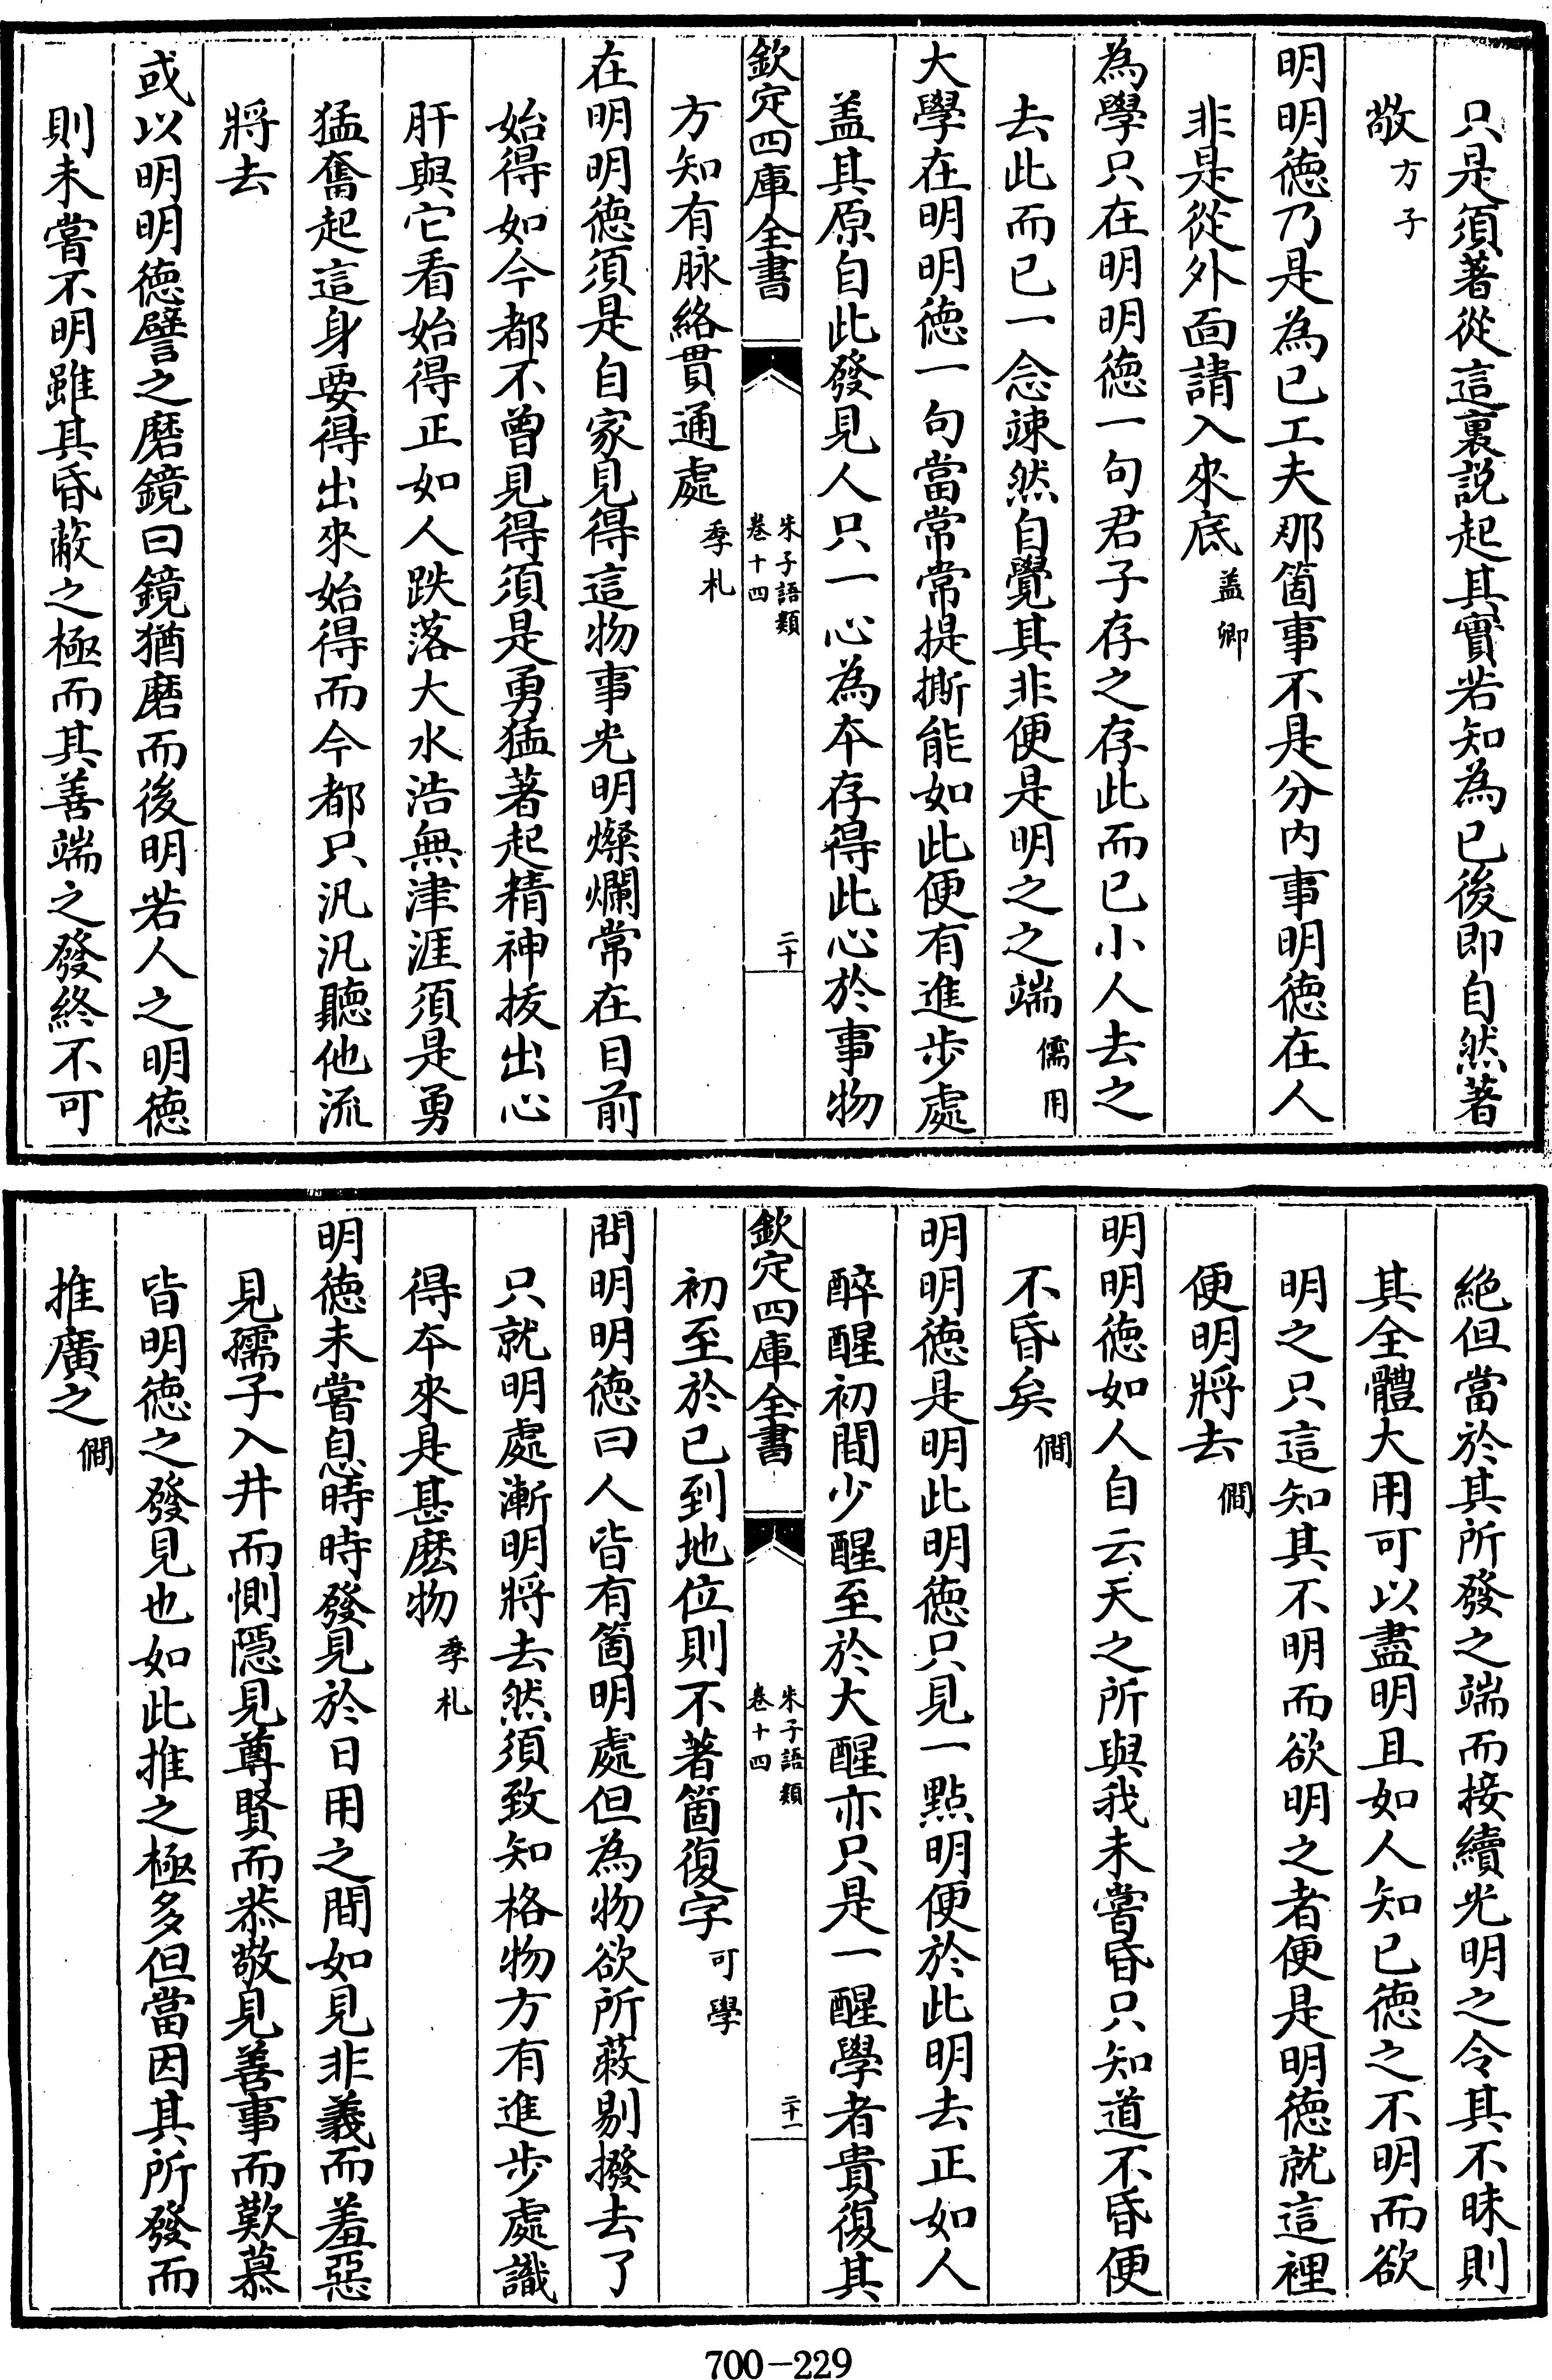 只是須著從這裏説起其實若知為已後即自然著
敬方子
明明徳乃是為已工夫那箇事不是分内事明徳在人
非是從外面請入來底蓋卿
為學只在明明徳一句君子存之存此而已小人去之
去此而已一念竦然自覺其非便是明之之端儒用
大學在明明徳一句當常常提撕能如此便有進步處
盖其原自此發見人只一心為本存得此心於事物
欽定四庫全書 朱子語類 卷十四 二十
方知有脉絡貫通處季札
在明明徳須是自家見得這物事光明燦爛常在目前
始得如今都不曾見得須是勇猛著起精神拔出心
肝與它看始得正如人跌落大水浩無津涯須是勇
猛奮起這身要得出來始得而今都只汎汎聽他流
將去
或以明明徳譬之磨鏡曰鏡猶磨而後明若人之明徳
則未嘗不明雖其昏蔽之極而其善端之發終不可
絶但當於其所發之端而接續光明之令其不昧則
其全體大用可以盡明且如人知已徳之不明而欲
明之只這知其不明而欲明之者便是明徳就這裡
便明將去僩
明明徳如人自云天之所與我未嘗昏只知道不昏便
不昏矣僩
明明徳是明此明徳只見一點明便於此明去正如人
醉醒初間少醒至於大醒亦只是一醒學者貴復其
欽定四庫全書 朱子語類 卷十四 二十一
初至於已到地位則不著箇復字可學
問明明徳曰人皆有箇明處但為物欲所蔽剔撥去了
只就明處漸明將去然須致知格物方有進步處識
得本來是甚麽物季札
明徳未嘗息時時發見於日用之間如見非義而羞惡
見孺子入井而惻隱見尊賢而恭敬見善事而歎慕
皆明徳之發見也如此推之極多但當因其所發而
推廣之僩
700-229